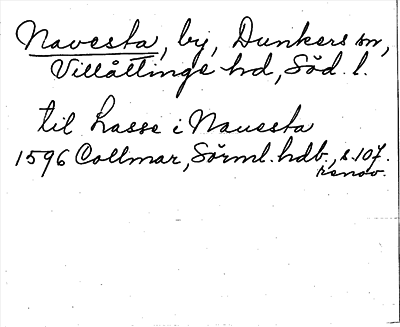 Navesta, by, Dunkers sn,
Villåttinge hd, Söd. l.
til Lasse i Nauesta
1596 Collmar, Sörml. hdb., s. 107.
renov.